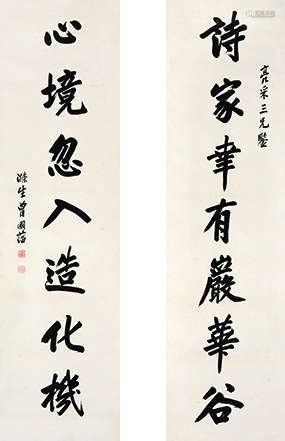 亮采三兄鑒
詩家幸有嚴華谷
心境忽入造化機
滌生曾國藩